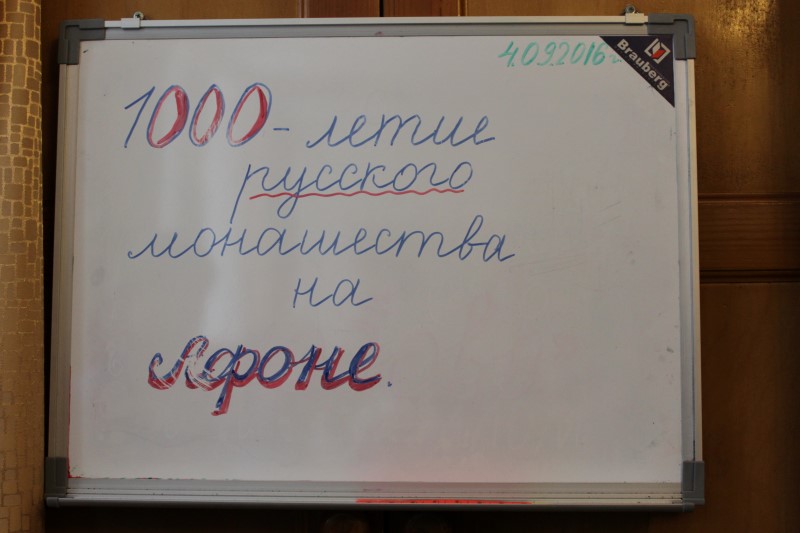 4.09.2016 г.
Brauberg
1000-летие
русского
монашества
на
Афоне.